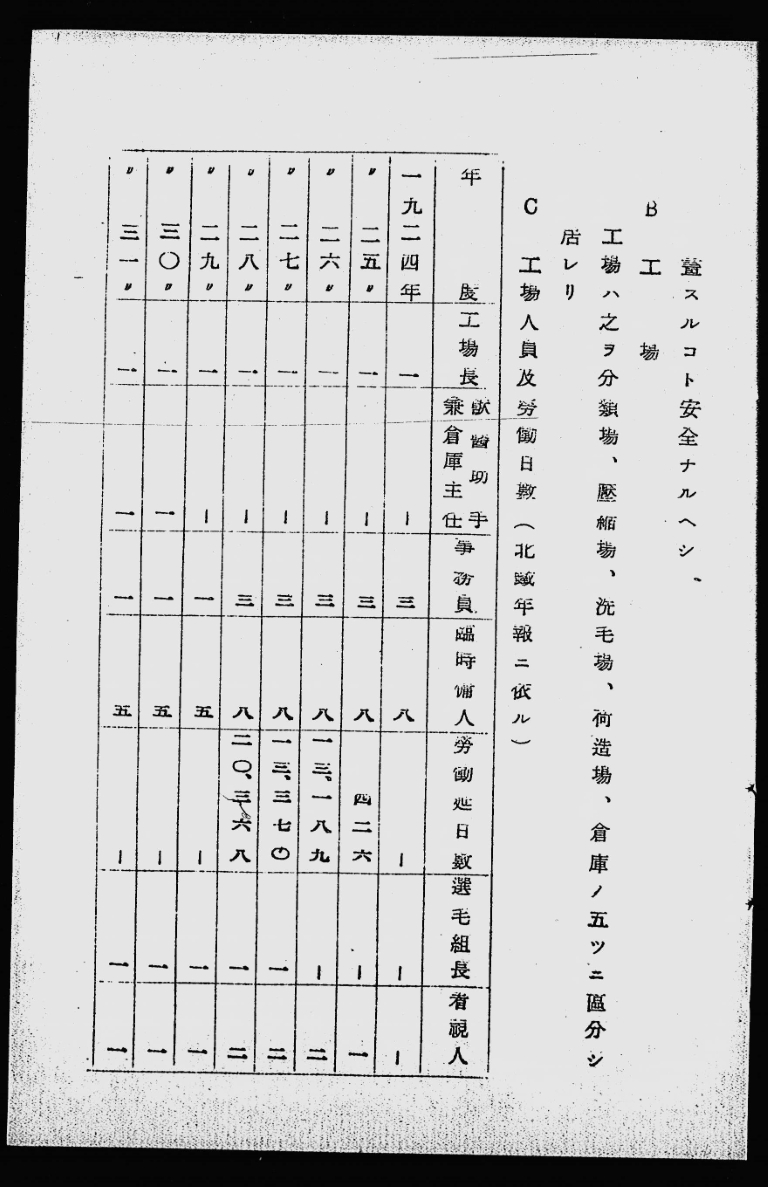 蓋スルコト安全ナルヘシ、
B 工場
工場ハ之ヲ分類場、壓縮場、洗毛場、荷造場、倉庫ノ五ツニ區分シ
居レリ
C 工場人員及勞働日數（北鐵年報ニ依ル）
年度 工場長 獸醫助手兼倉庫主仕 事務員 臨時傭人 勞働延日數 選毛組長 看視人
一九二四年 一 ー 三 八 ー ー ー
〃二五〃 一 ー 三 八 四二六 ー 一
〃二六〃 一 ー 三 八 一三、一八九 ー 二
〃二七〃 一 ー 三 八 一三、三七〇 一 二
〃二八〃 一 ー 三 八 二〇、三六八 一 二
〃二九〃 一 ー 一 五 ー 一 一
〃三〇〃 一 一 一 五 ー 一 一
〃三一〃 一 一 一 五 ー 一 一